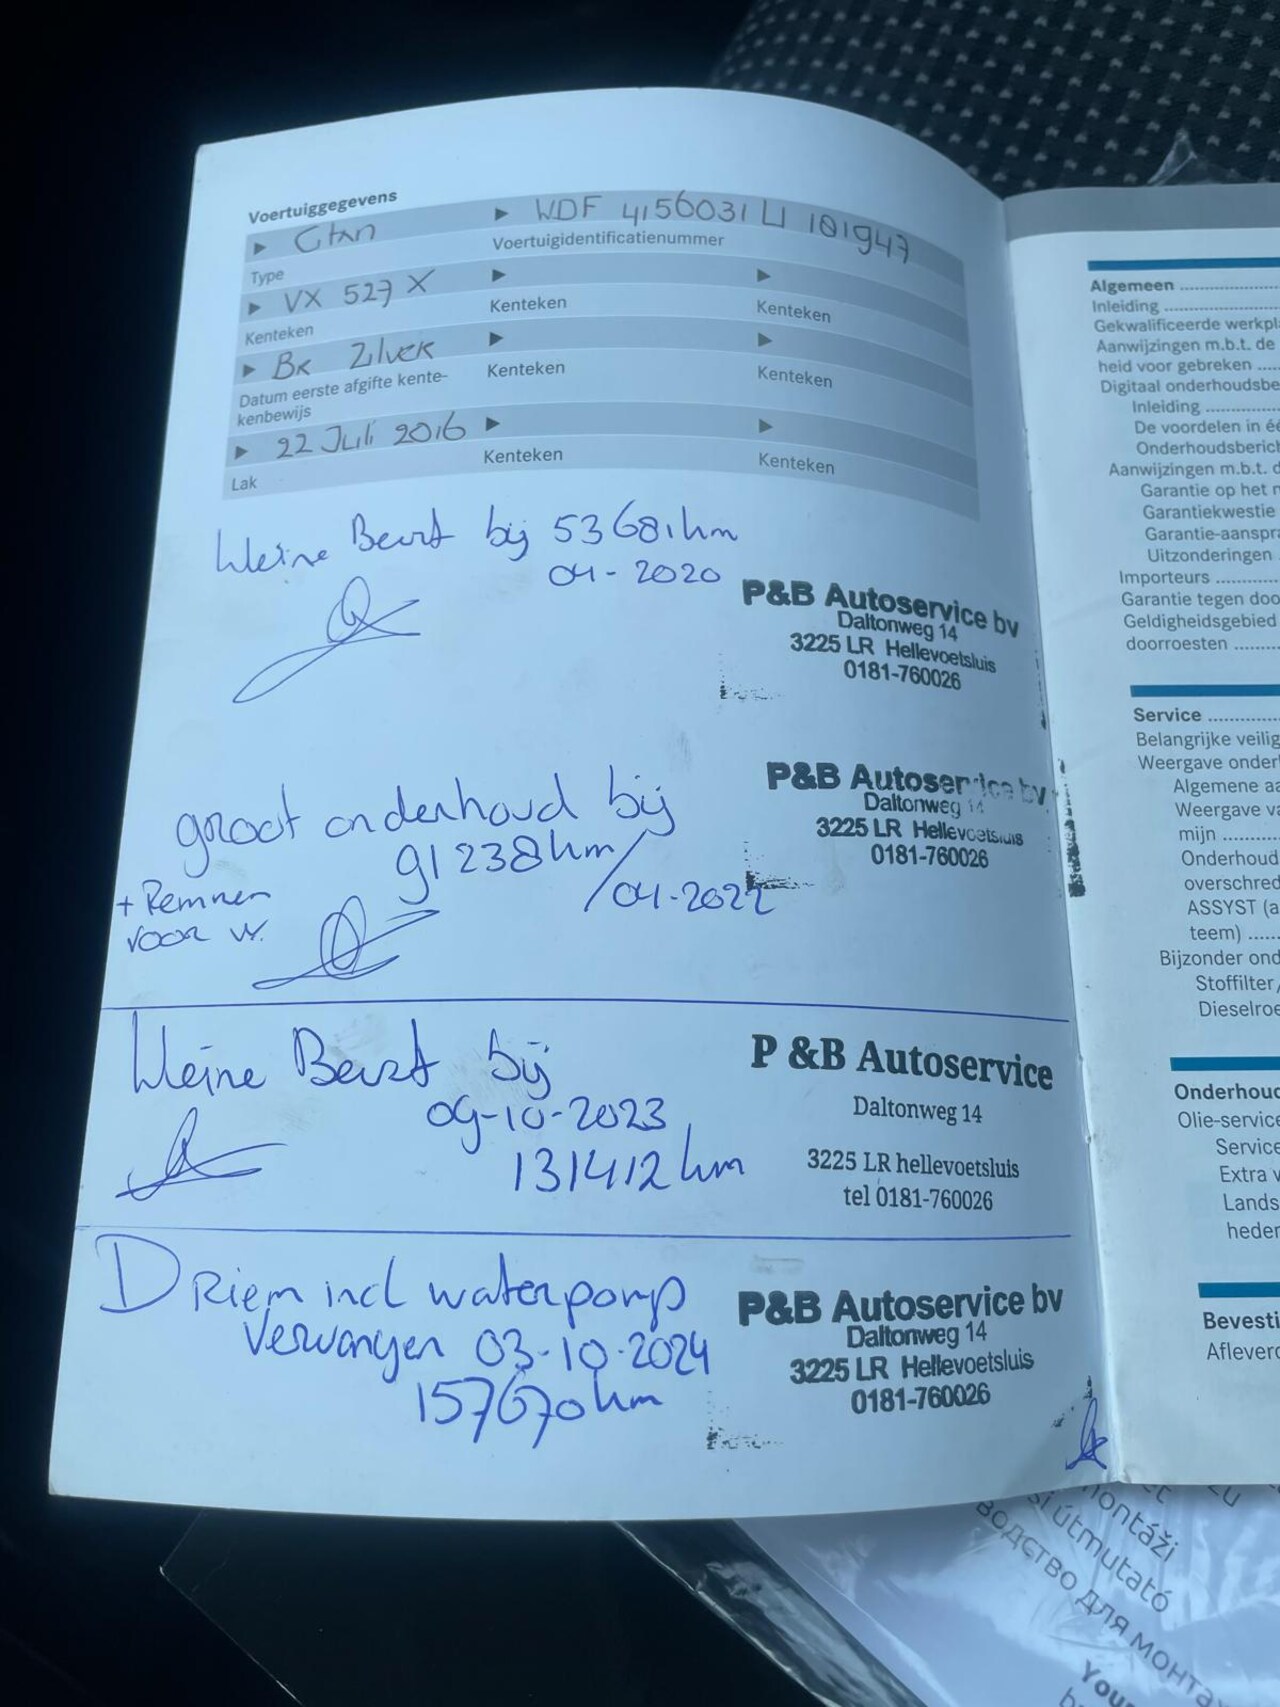 Voertuiggegevens
▶ Citan
▶ WDF 4156031 U 181947
Type
Voertuigidentificatienummer
▶ VX 527 X
▶
▶
Kenteken
Kenteken
Kenteken
▶ BR Zilver
▶
▶
Datum eerste afgifte kente-
kenbewijs
Kenteken
Kenteken
▶ 22 Juli 2016
▶
▶
Lak
Kenteken
Kenteken
kleine Beurt bij 53681 km
04-2020
P&B Autoservice bv
Daltonweg 14
3225 LR Hellevoetsluis
0181-760026
groot onderhoud bij
91238 km/
04-2022
+ Remmen
voor v.
P&B Autoservice bv
Daltonweg 14
3225 LR Hellevoetsluis
0181-760026
kleine Beurt bij
09-10-2023
131412 km
P &B Autoservice
Daltonweg 14
3225 LR hellevoetsluis
tel 0181-760026
DRiem incl waterpomp
Vervangen 03-10-2024
157670 km
P&B Autoservice bv
Daltonweg 14
3225 LR Hellevoetsluis
0181-760026
Algemeen
Inleiding
Gekwalificeerde werkpl
Aanwijzingen m.b.t. de
heid voor gebreken
Digitaal onderhoudsbe
Inleiding
De voordelen in éé
Onderhoudsberich
Aanwijzingen m.b.t. d
Garantie op het n
Garantiekwestie
Garantie-aanspra
Uitzonderingen
Importeurs
Garantie tegen doo
Geldigheidsgebied
doorroesten
Service
Belangrijke veilig
Weergave onder
Algemene aa
Weergave va
mijn
Onderhoud
overschred
ASSYST (a
teem)
Bijzonder ond
Stoffilter/
Dieselroe
Onderhoud
Olie-service
Service
Extra v
Lands
heden
Bevesti
Afleverc
montáži
si útmutató
водство для монта
Your